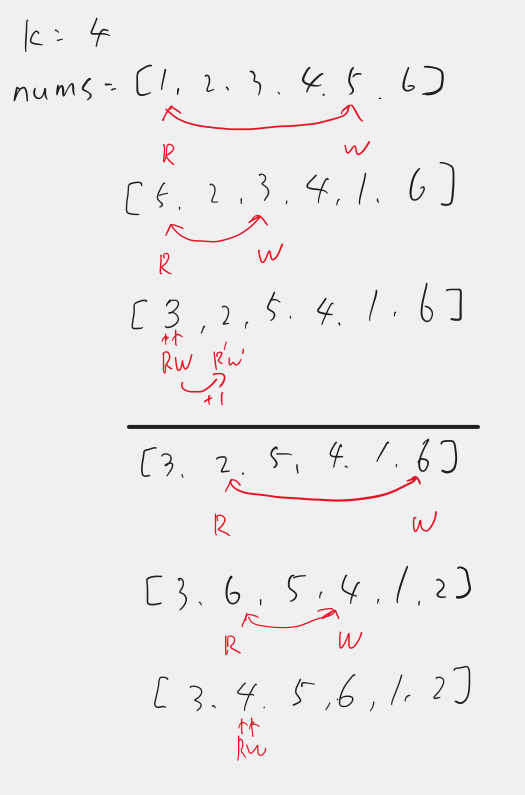 k = 4
nums = [1, 2. 3. 4. 5. 6]
R W
[5. 2, 3. 4, 1. 6]
R W
[3, 2, 5. 4. 1. 6]
RW R'W'
+1
[3. 2. 5, 4. 1. 6]
R W
[3. 6. 5, 4, 1, 2]
R W
[3. 4. 5, 6, 1, 2]
RW